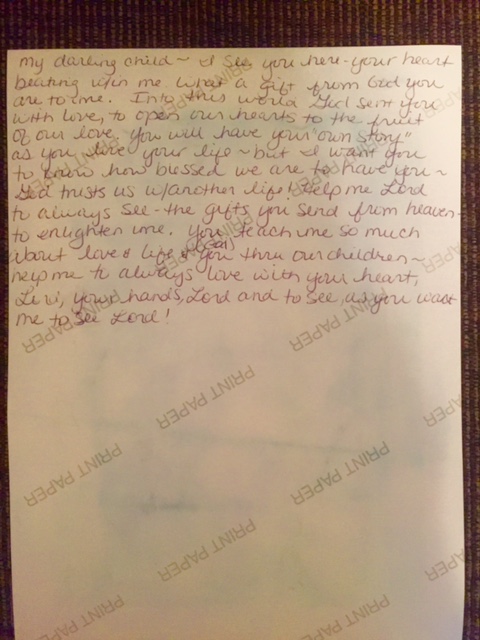 my darling child ~ I see you here - your heart
beating w/in me. What a gift from God you
are to me. Into this world God sent you
with love, to open our hearts to the fruit
of our love. You will have your "own story"
as you live your life ~ but I want you
to know how blessed we are to have you ~
God trusts us w/another life! Help me Lord
to always see - the gifts you send from heaven -
to enlighten me. You teach me so much
about love & life & you (God) thru our children ~
help me to always love with your heart,
your hands, Lord and to see as you want
me to see Lord!
PRINT PAPER
PRINT PAPER
PRINT PAPER
PRINT PAPER
PRINT PAPER
PRINT PAPER
PRINT PAPER
PRINT PAPER
PRINT PAPER
PRINT PAPER